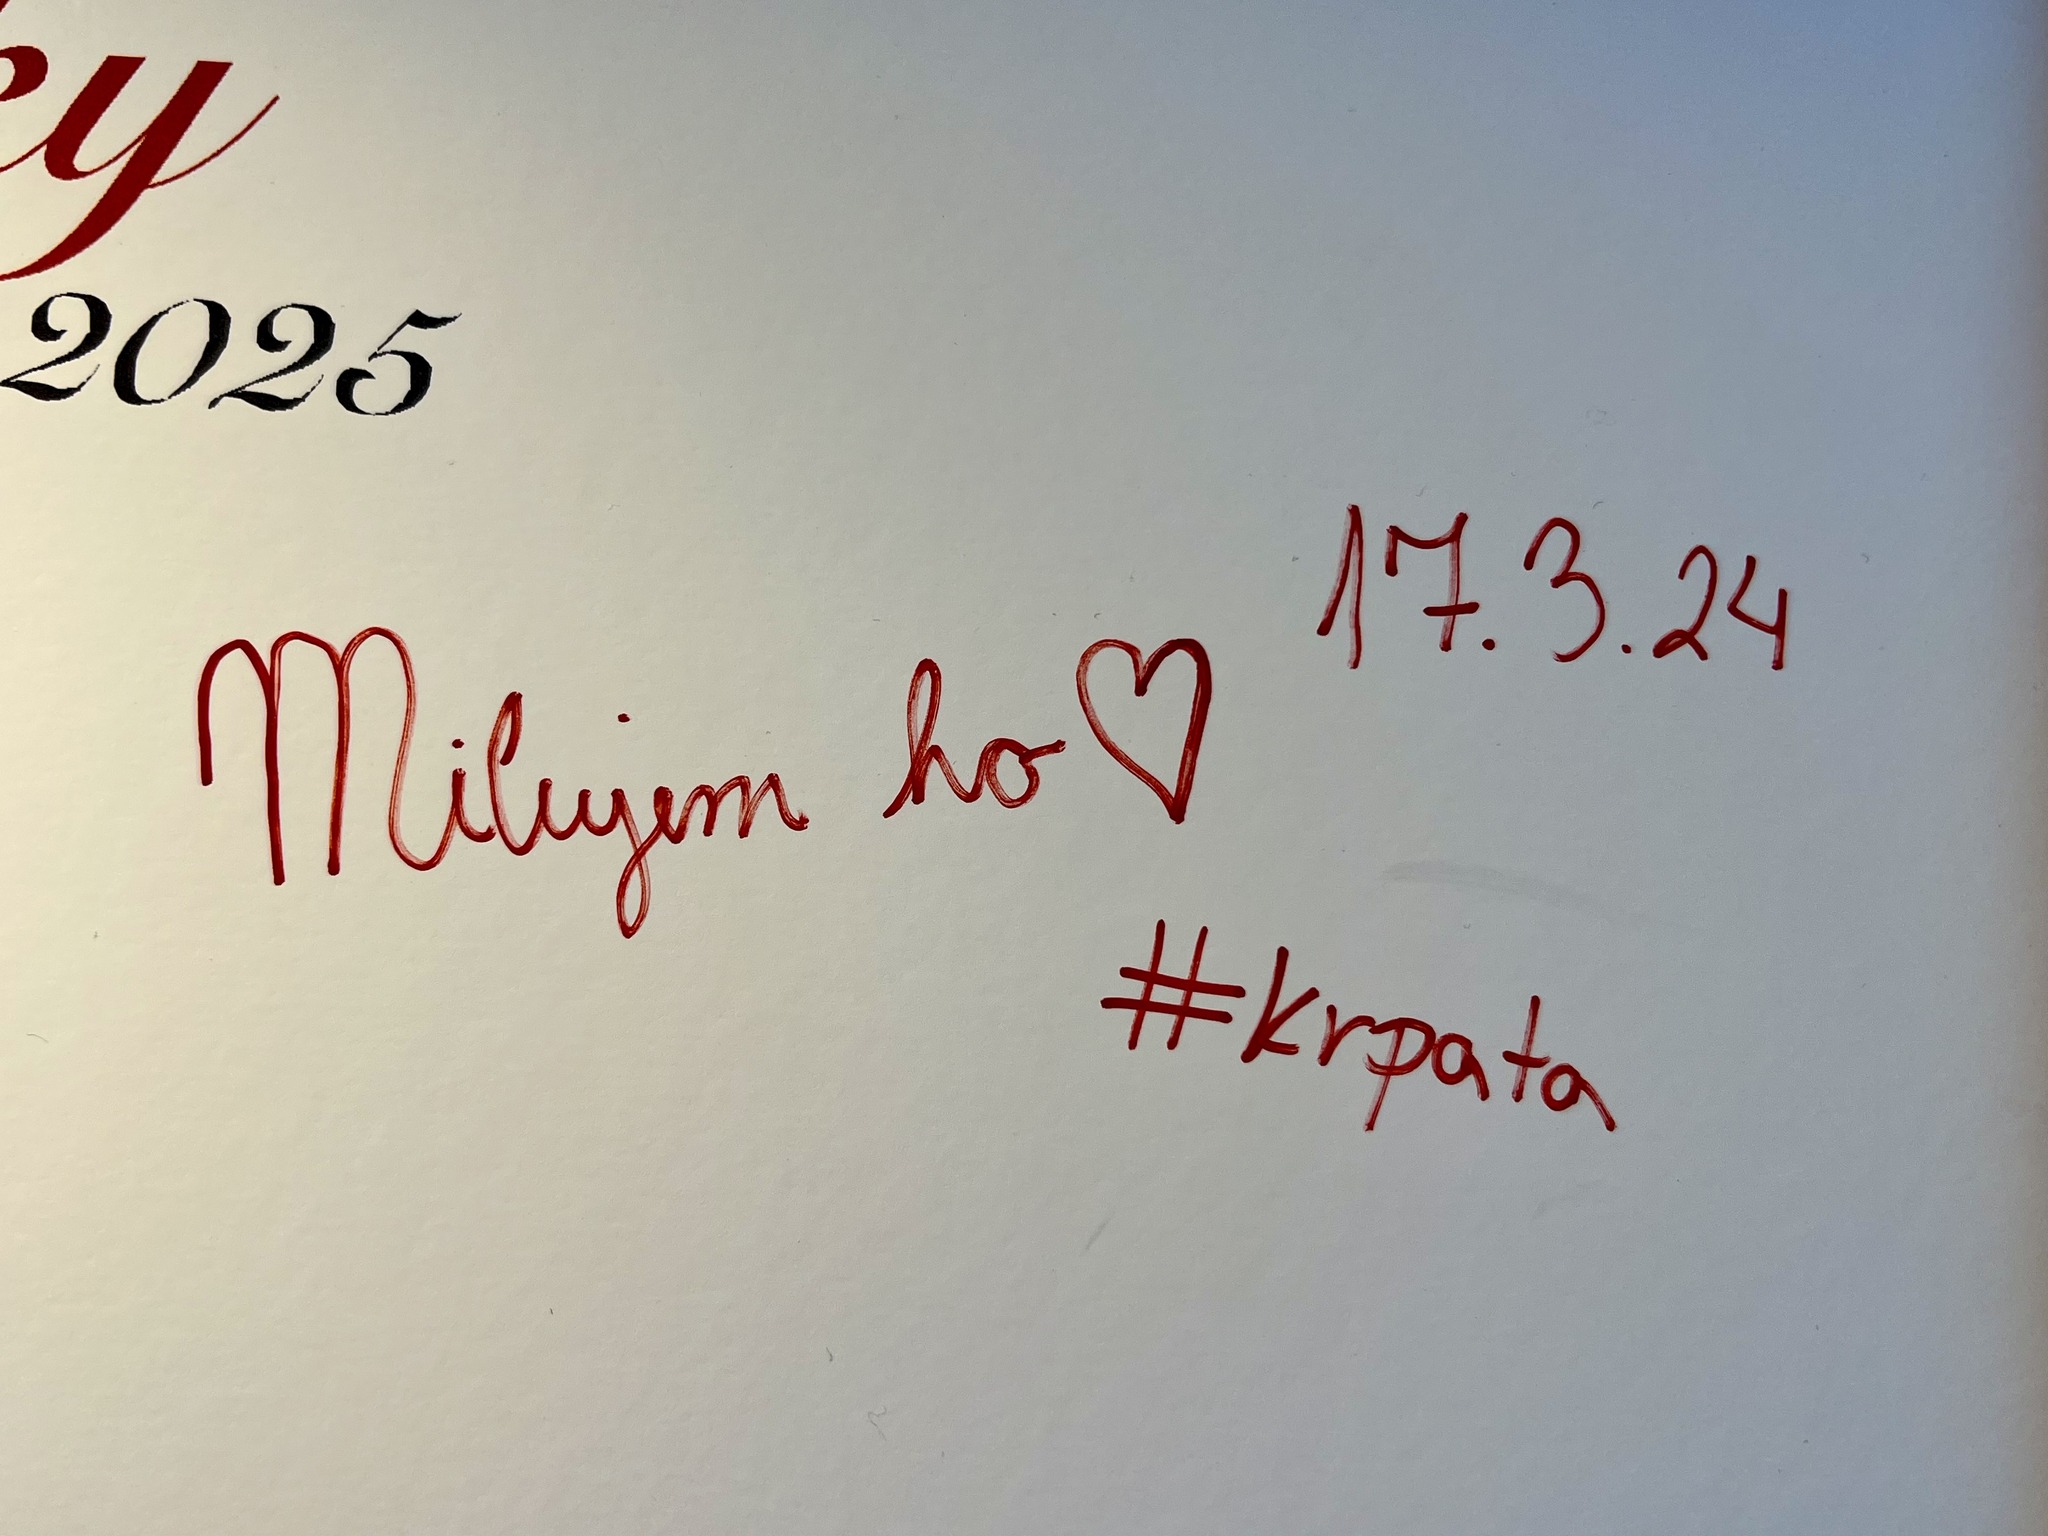 2025
17.3.24
Milujem ho ♡
#krpata